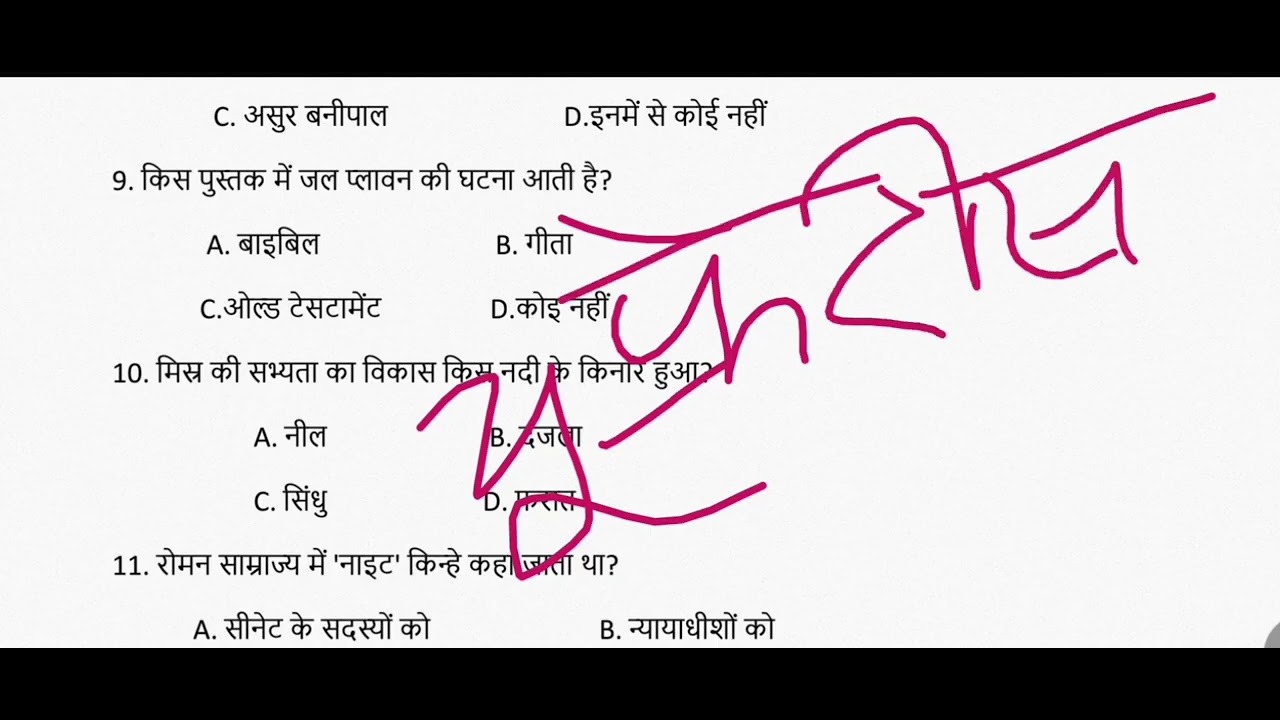 C. असुर बनीपाल D.इनमें से कोई नहीं
9. किस पुस्तक में जल प्लावन की घटना आती है?
A. बाइबिल B. गीता
C.ओल्ड टेसटामेंट D.कोइ नहीं
10. मिस्र की सभ्यता का विकास किस नदी के किनारे हुआ?
A. नील B. दजला
C. सिंधु D. फरात
11. रोमन साम्राज्य में 'नाइट' किन्हे कहा जाता था?
A. सीनेट के सदस्यों को B. न्यायाधीशों को